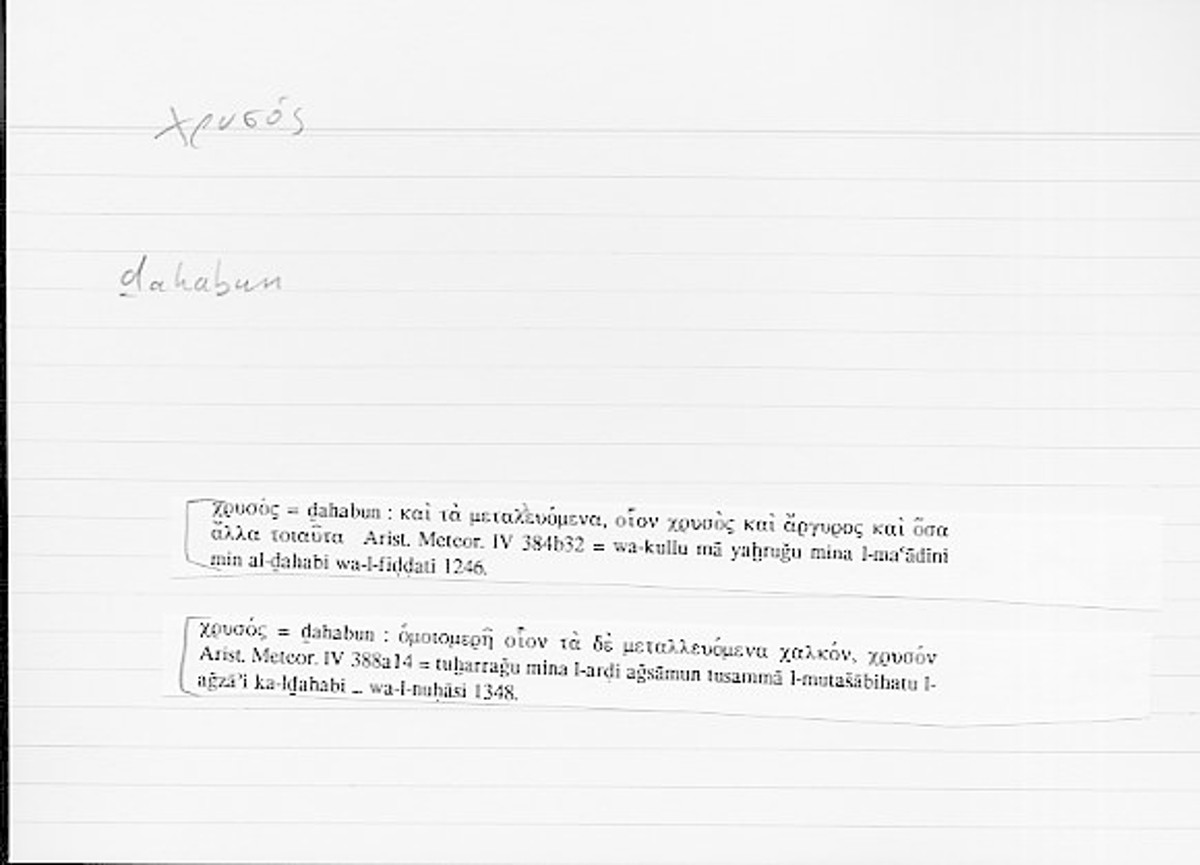 χρυσός
ḏahabun
χρυσὸς = ḏahabun : καὶ τὰ μεταλευόμενα, οἷον χρυσὸς καὶ ἄργυρος καὶ ὅσα
ἄλλα τοιαῦτα Arist. Meteor. IV 384b32 = wa-kullu mā yaḫruǧu mina l-maʿādini
min al-ḏahabi wa-l-fiḍḍati 1246.
χρυσός = ḏahabun : ὁμοιομερῆ οἷον τὰ δὲ μεταλλευόμενα χαλκόν, χρυσόν
Arist. Meteor. IV 388a14 = tuḫarraǧu mina l-arḍi aǧsāmun tusammā l-mutašābihatu l-
aǧzāʾi ka-lḏahabi _ wa-l-nuḥāsi 1348.